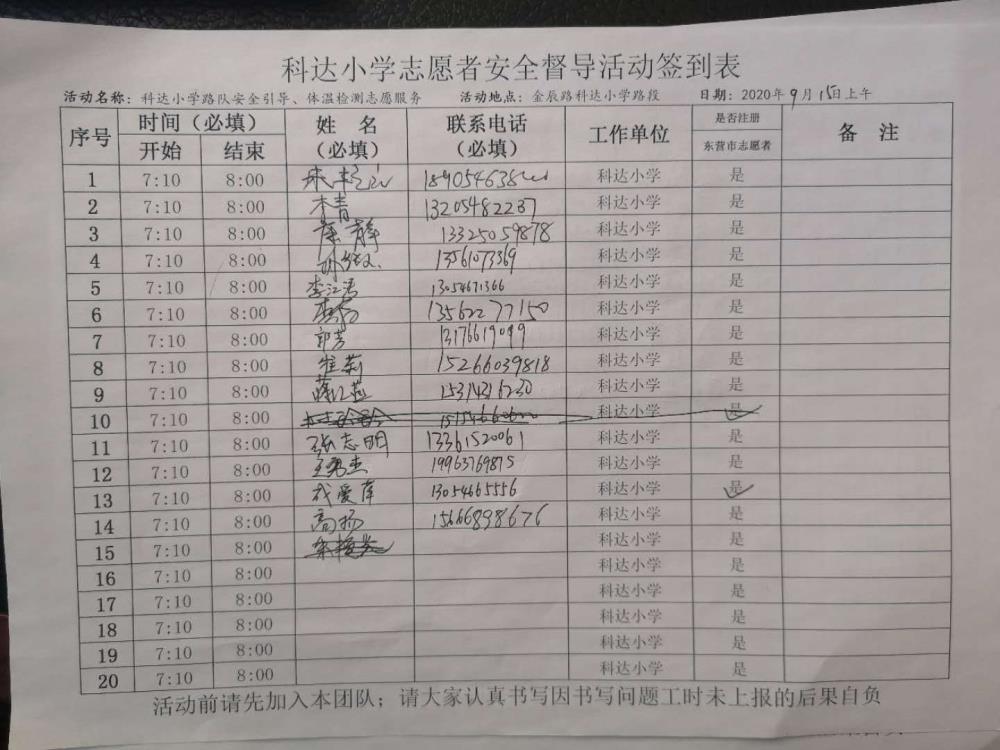 科达小学志愿者安全督导活动签到表
活动名称：科达小学路队安全引导、体温检测志愿服务 活动地点：金辰路科达小学路段 日期：2020年9月15日上午
序号 时间（必填） 姓 名（必填） 联系电话（必填） 工作单位 是否注册东营市志愿者 备 注
开始 结束
1 7:10 8:00 科达小学 是
2 7:10 8:00 木青 13205482237 科达小学 是
3 7:10 8:00 静 13325059878 科达小学 是
4 7:10 8:00 13561073369 科达小学 是
5 7:10 8:00 李江涛 13054671366 科达小学 是
6 7:10 8:00 13562277150 科达小学 是
7 7:10 8:00 郭芳 13176619099 科达小学 是
8 7:10 8:00 崔莉 15266039818 科达小学 是
9 7:10 8:00 15314316230 科达小学 是
10 7:10 8:00 科达小学 是
11 7:10 8:00 张志明 13361520061 科达小学 是
12 7:10 8:00 王勇杰 19963769875 科达小学 是
13 7:10 8:00 爱萍 13054665556 科达小学 是
14 7:10 8:00 高扬 15666898676 科达小学 是
15 7:10 8:00 科达小学 是
16 7:10 8:00 科达小学 是
17 7:10 8:00 科达小学 是
18 7:10 8:00 科达小学 是
19 7:10 8:00 科达小学 是
20 7:10 8:00 科达小学 是
活动前请先加入本团队；请大家认真书写因书写问题工时未上报的后果自负